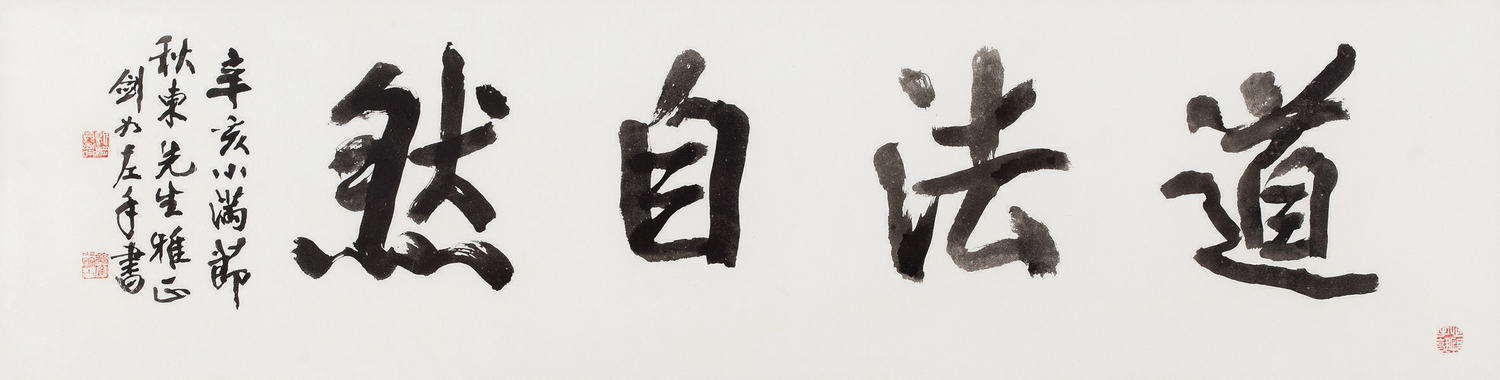 道法自然
辛亥小满节
秋東先生雅正
剑力左手書